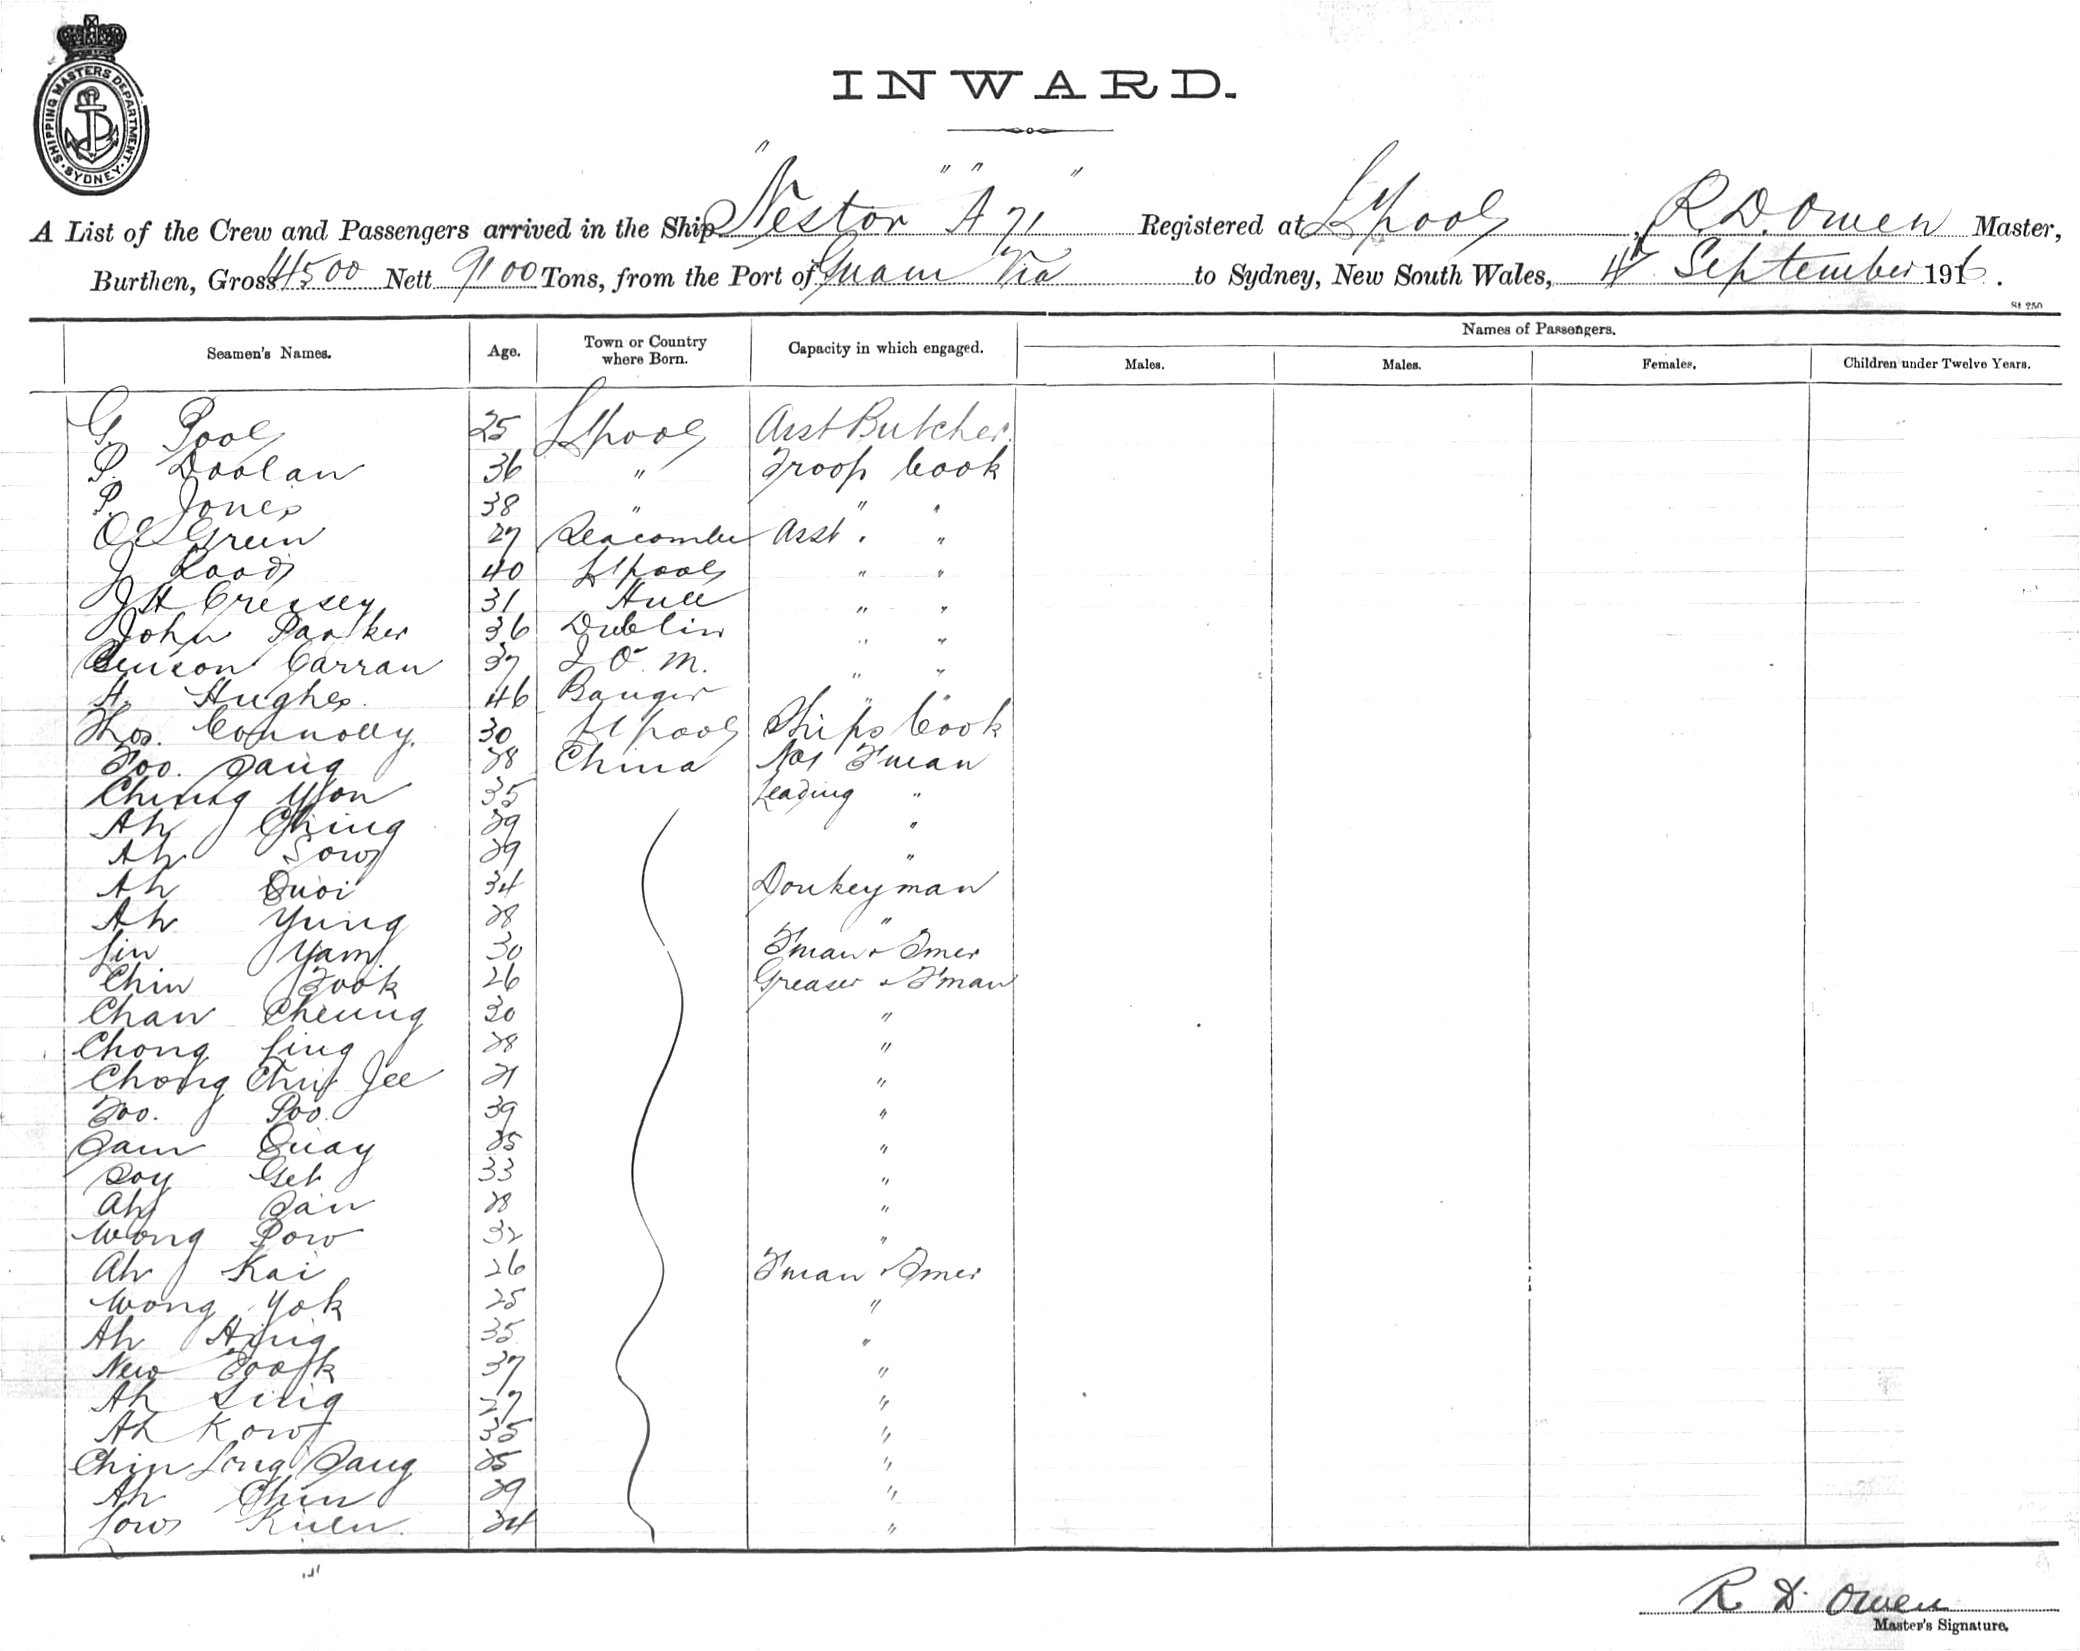 SHIPPING MASTERS DEPARTMENT SYDNEY
INWARD.
A List of the Crew and Passengers arrived in the Ship "Nestor" "A 71" Registered at L'pool, R. D. Owen Master,
Burthen, Gross 14500 Nett 9100 Tons, from the Port of Guam Via to Sydney, New South Wales, 4 September 1916.
St 250
Seamen's Names. Age. Town or Country where Born. Capacity in which engaged. Names of Passengers.
Males. Males. Females. Children under Twelve Years.
G. Pool 25 L'pool Asst Butcher
P. Doolan 36 " Troop Cook
P. Jones 38 " " "
Green 27 Seacombe Asst " "
J 40 L'pool " "
J H Creasey 31 Hull " "
John Parker 36 Dublin " "
Benson Carran 37 I O M. " "
H. Hughes. 46 Bangor " "
Thos. Connolly. 30 L'pool Ships Cook
Foo. Sang 28 China No 1 F'man
Cheung Yon 35 Leading "
Ah Ching 29 "
Ah Sow 29 "
Ah Quoi 34 Donkeyman
Ah Yung 28 "
Lin Yam 30 F'man & Tmer
Chin Fook 26 Greaser & F'man
Chan Cheung 30 "
Chong Ling 28 "
Chong Chip Jee 21 "
Foo. Poo. 39 "
Sam Quay 25 "
Soy Get 33 "
Ah San 28 "
Wong Pow 32 "
Ah Kai 26 F'man & Tmer
Wong Yok 25 "
Ah Hing 35 "
New Fook 37 "
Ah Ling 27 "
Ah Kow 35 "
Chin Long Sang 25 "
Ah Chin 29 "
Low Kuen 24 "
R. D. Owen
Master's Signature.